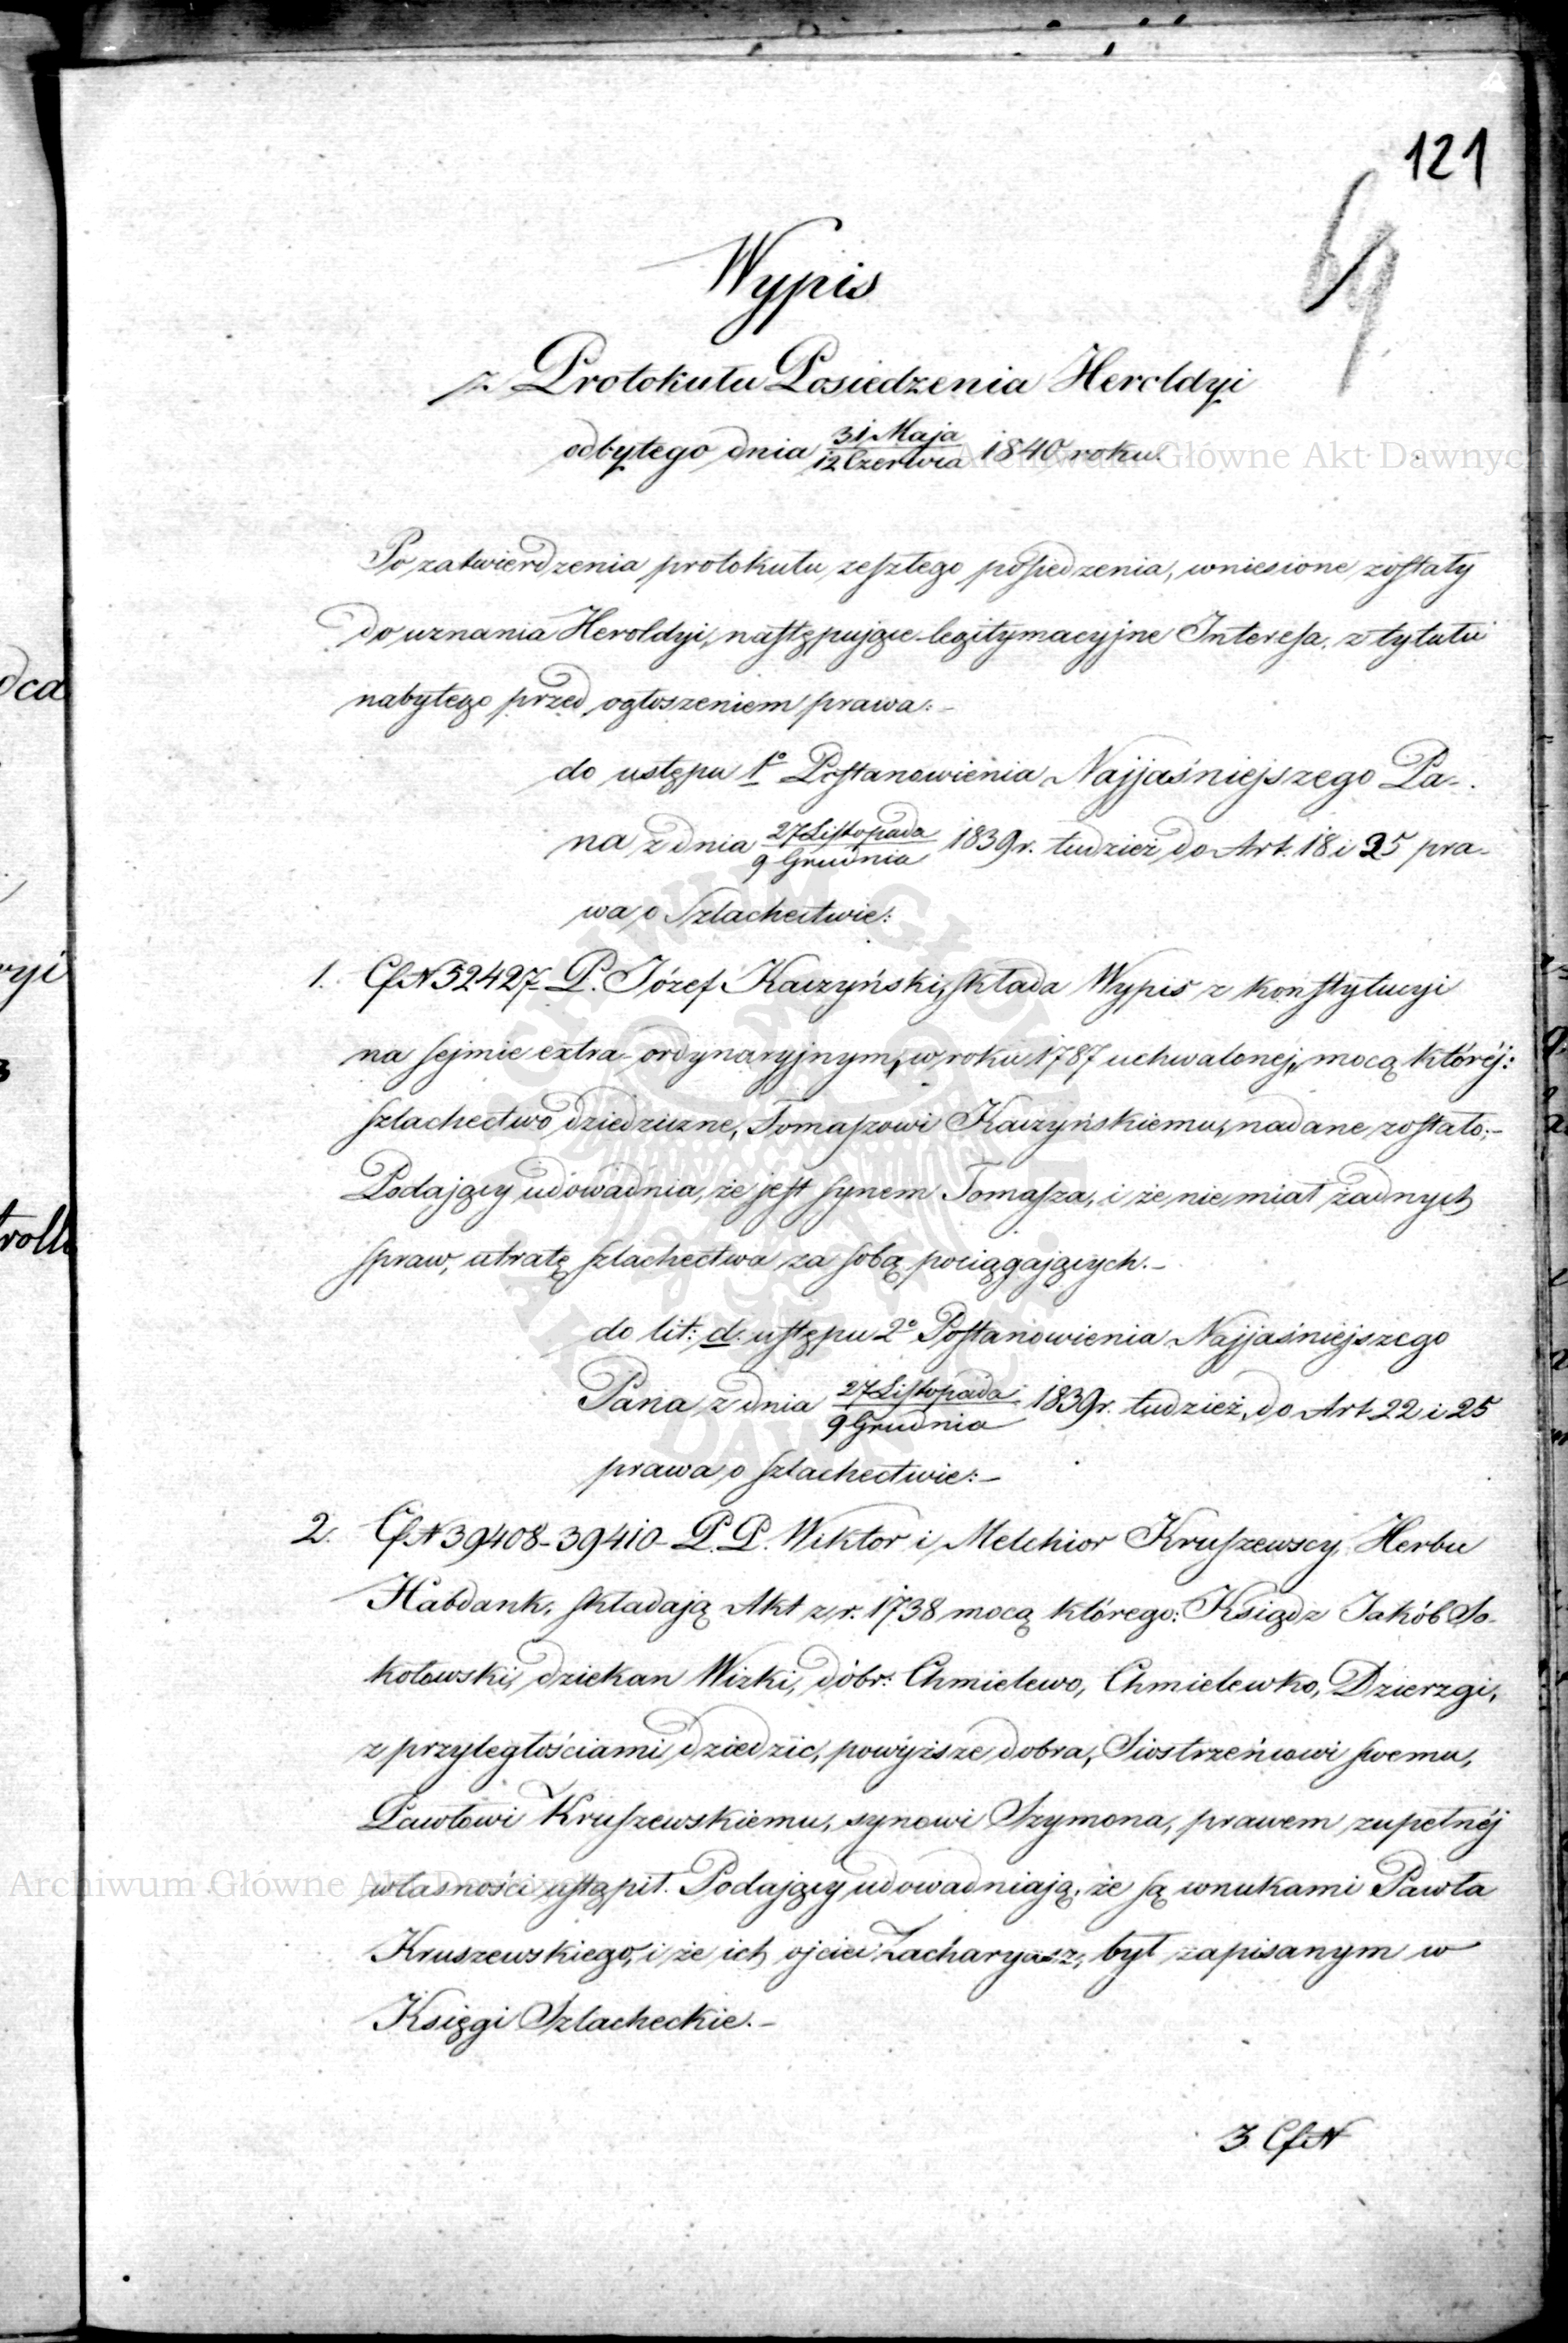 121
Wypis
z Protokułu Posiedzenia Heroldyi
odbytego dnia 31 Maja / 12 Czerwca 1840 roku.
Archiwum Główne Akt Dawnych
Po zatwierdzenia protokułu zeszłego posiedzenia, wniesione zostały
do uznania Heroldyi, następujące legitymacyjne Interesa, z tytułu
nabytego przed ogłoszeniem prawa:-
do ustępu 1º Postanowienia Najjaśniejszego Pa-
na z dnia 27 Listopada / 9 Grudnia 1839 r. tudzież do Art. 18 i 25 pra-
wa o Szlachectwie:
1. Cf N 52427 - P. Józef Kaczyński, składa Wypis z konstytucyi
na sejmie extra-ordynaryjnym, w roku 1787 uchwalonej, mocą któréj:
szlachectwo dziedziczne, Tomaszowi Kaczyńskiemu, nadane zostało.-
Podający udowadnia, że jest synem Tomasza, i że nie miał żadnych
spraw, utratę szlachectwa za sobą pociągających.-
do lit: d. ustępu 2º Postanowienia Najjaśniejszego
Pana z dnia 27 Listopada / 9 Grudnia 1839 r. tudzież, do Art. 22 i 25
prawa o szlachectwie:-
2. Cf N 39408 - 39410 - P. P. Wiktor i Melchior Kruszewscy Herbu
Habdank, składają Akt z r. 1738 mocą którego: Ksiądz Jakób So-
kołowski, dziekan Wizki, dóbr: Chmielewo, Chmielewko, Dzierzgi,
z przyległościami dziedzic, powyższe dobra, Siostrzeńcowi swemu,
Pawłowi Kruszewskiemu, synowi Szymona, prawem zupełnéj
własności ustąpił. Podający udowadniają, że są wnukami Pawła
Archiwum Główne Akt Dawnych
Kruszewskiego, i że ich ojciec Zacharyasz, był zapisanym w
Księgi Szlacheckie.-
3. Cf N